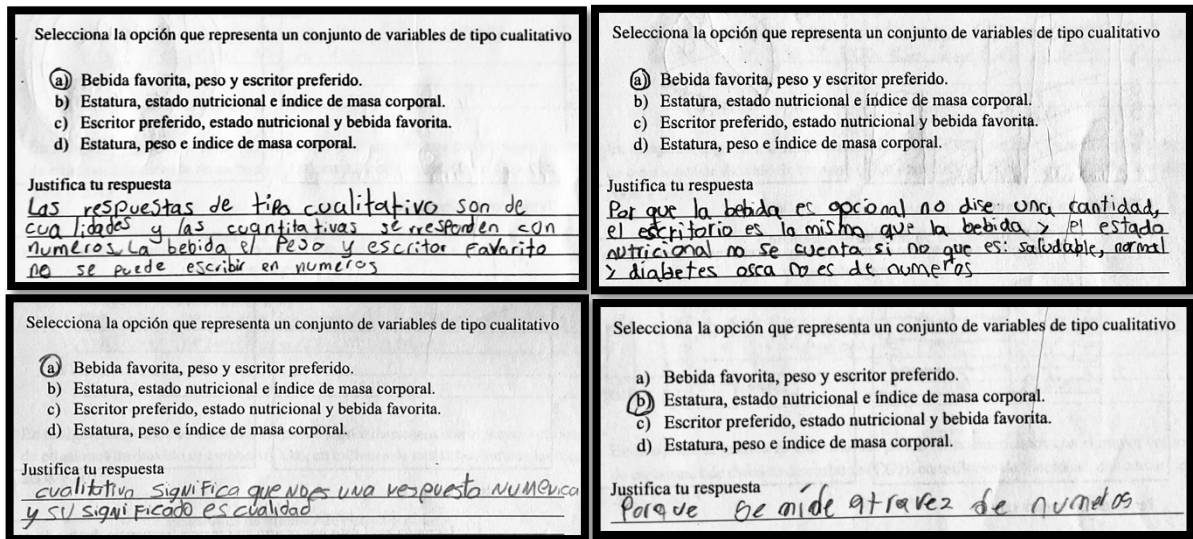 Selecciona la opción que representa un conjunto de variables de tipo cualitativo
a) Bebida favorita, peso y escritor preferido.
b) Estatura, estado nutricional e índice de masa corporal.
c) Escritor preferido, estado nutricional y bebida favorita.
d) Estatura, peso e índice de masa corporal.
Justifica tu respuesta
Las respuestas de tipo cualitativo son de
cualidades y las cuantitativas se rresponden con
numeros. La bebida el Peso y escritor Favorito
no se puede escribir en numeros
Selecciona la opción que representa un conjunto de variables de tipo cualitativo
a) Bebida favorita, peso y escritor preferido.
b) Estatura, estado nutricional e índice de masa corporal.
c) Escritor preferido, estado nutricional y bebida favorita.
d) Estatura, peso e índice de masa corporal.
Justifica tu respuesta
Por que la bebida es opcional no dise una cantidad,
el escritorio es lo mismo que la bebida y el estado
nutricional no se cuenta si no que es: saludable, normal
y diabetes osea no es de numeros
Selecciona la opción que representa un conjunto de variables de tipo cualitativo
a) Bebida favorita, peso y escritor preferido.
b) Estatura, estado nutricional e índice de masa corporal.
c) Escritor preferido, estado nutricional y bebida favorita.
d) Estatura, peso e índice de masa corporal.
Justifica tu respuesta
cualitativo significa que no es una respuesta numerica
y su significado es cualidad
Selecciona la opción que representa un conjunto de variables de tipo cualitativo
a) Bebida favorita, peso y escritor preferido.
b) Estatura, estado nutricional e índice de masa corporal.
c) Escritor preferido, estado nutricional y bebida favorita.
d) Estatura, peso e índice de masa corporal.
Justifica tu respuesta
Porque se mide atravez de numeros